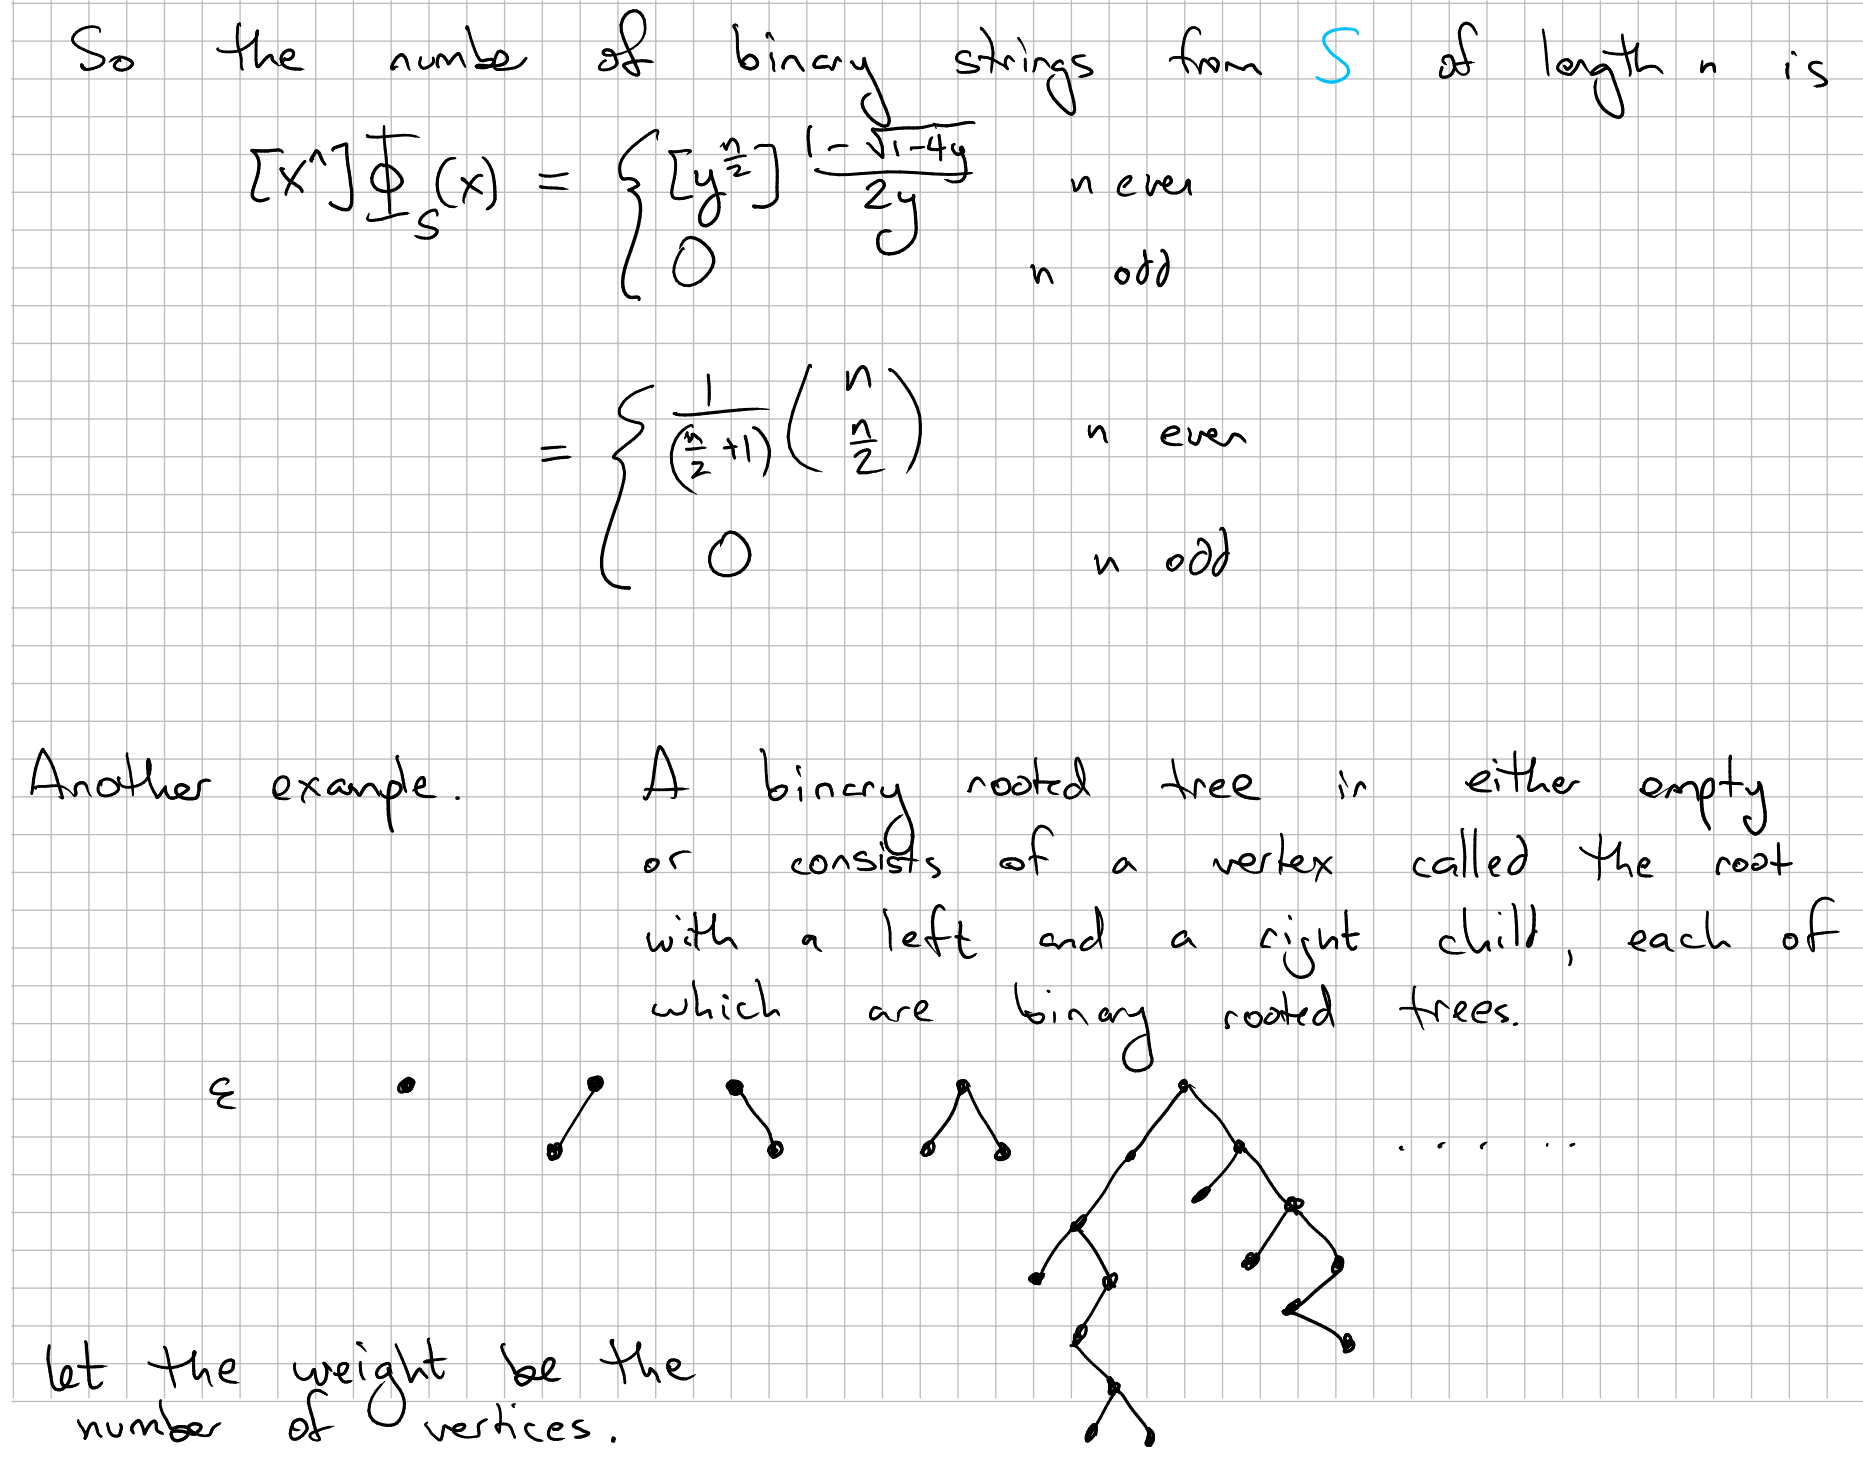 So the numbe of binary strings from S of length n is
[x^n] Φ_S(x) = { [y^{n/2}] (1 - √(1-4y)) / 2y    n even
0    n odd
= { 1/(n/2 + 1) (n choose n/2)    n even
0    n odd
Another example. A binary rooted tree is either empty
or consists of a vertex called the root
with a left and a right child, each of
which are binary rooted trees.
ε
. . . . . .
let the weight be the
number of vertices.